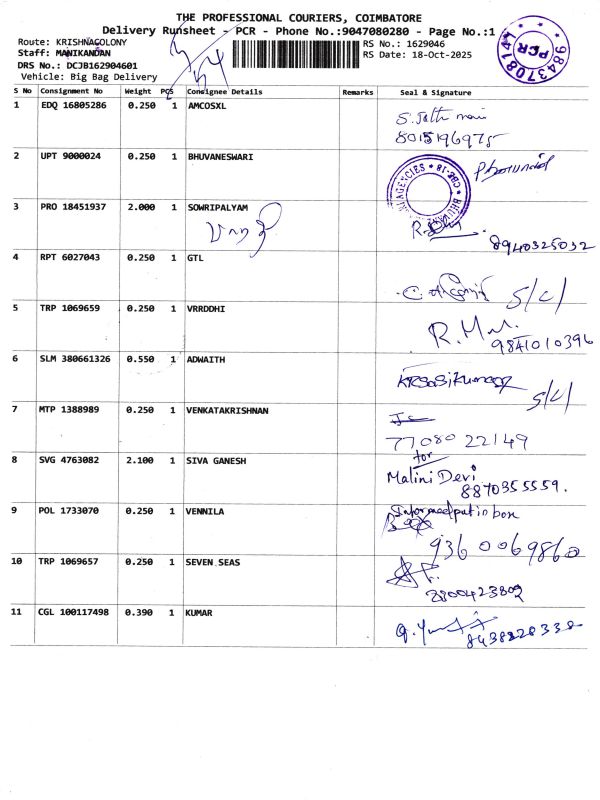 THE PROFESSIONAL COURIERS, COIMBATORE
Delivery Runsheet - PCR - Phone No.:9047080280 - Page No.:1
Route: KRISHNACOLONY
Staff: MANIKANDAN
DRS No.: DCJB162904601
Vehicle: Big Bag Delivery
RS No.: 1629046
RS Date: 18-Oct-2025
PCR
S No Consignment No Weight PCS Consignee Details Remarks Seal & Signature
1 EDQ 16805286 0.250 1 AMCOSXL
8015196975
2 UPT 9000024 0.250 1 BHUVANESWARI
AGENCIES * CBE-18 *
3 PRO 18451937 2.000 1 SOWRIPALYAM
8940325032
4 RPT 6027043 0.250 1 GTL
S/C/
5 TRP 1069659 0.250 1 VRRDDHI
R.M
9841010396
6 SLM 380661326 0.550 1 ADWAITH
KRSasikumar
S/C/
7 MTP 1388989 0.250 1 VENKATAKRISHNAN
77080 22149
8 SVG 4763082 2.100 1 SIVA GANESH
for
Malini Devi
8870355559.
9 POL 1733070 0.250 1 VENNILA
Informed put in box
9360069860
10 TRP 1069657 0.250 1 SEVEN SEAS
8800423802
11 CGL 100117498 0.390 1 KUMAR
8438228338